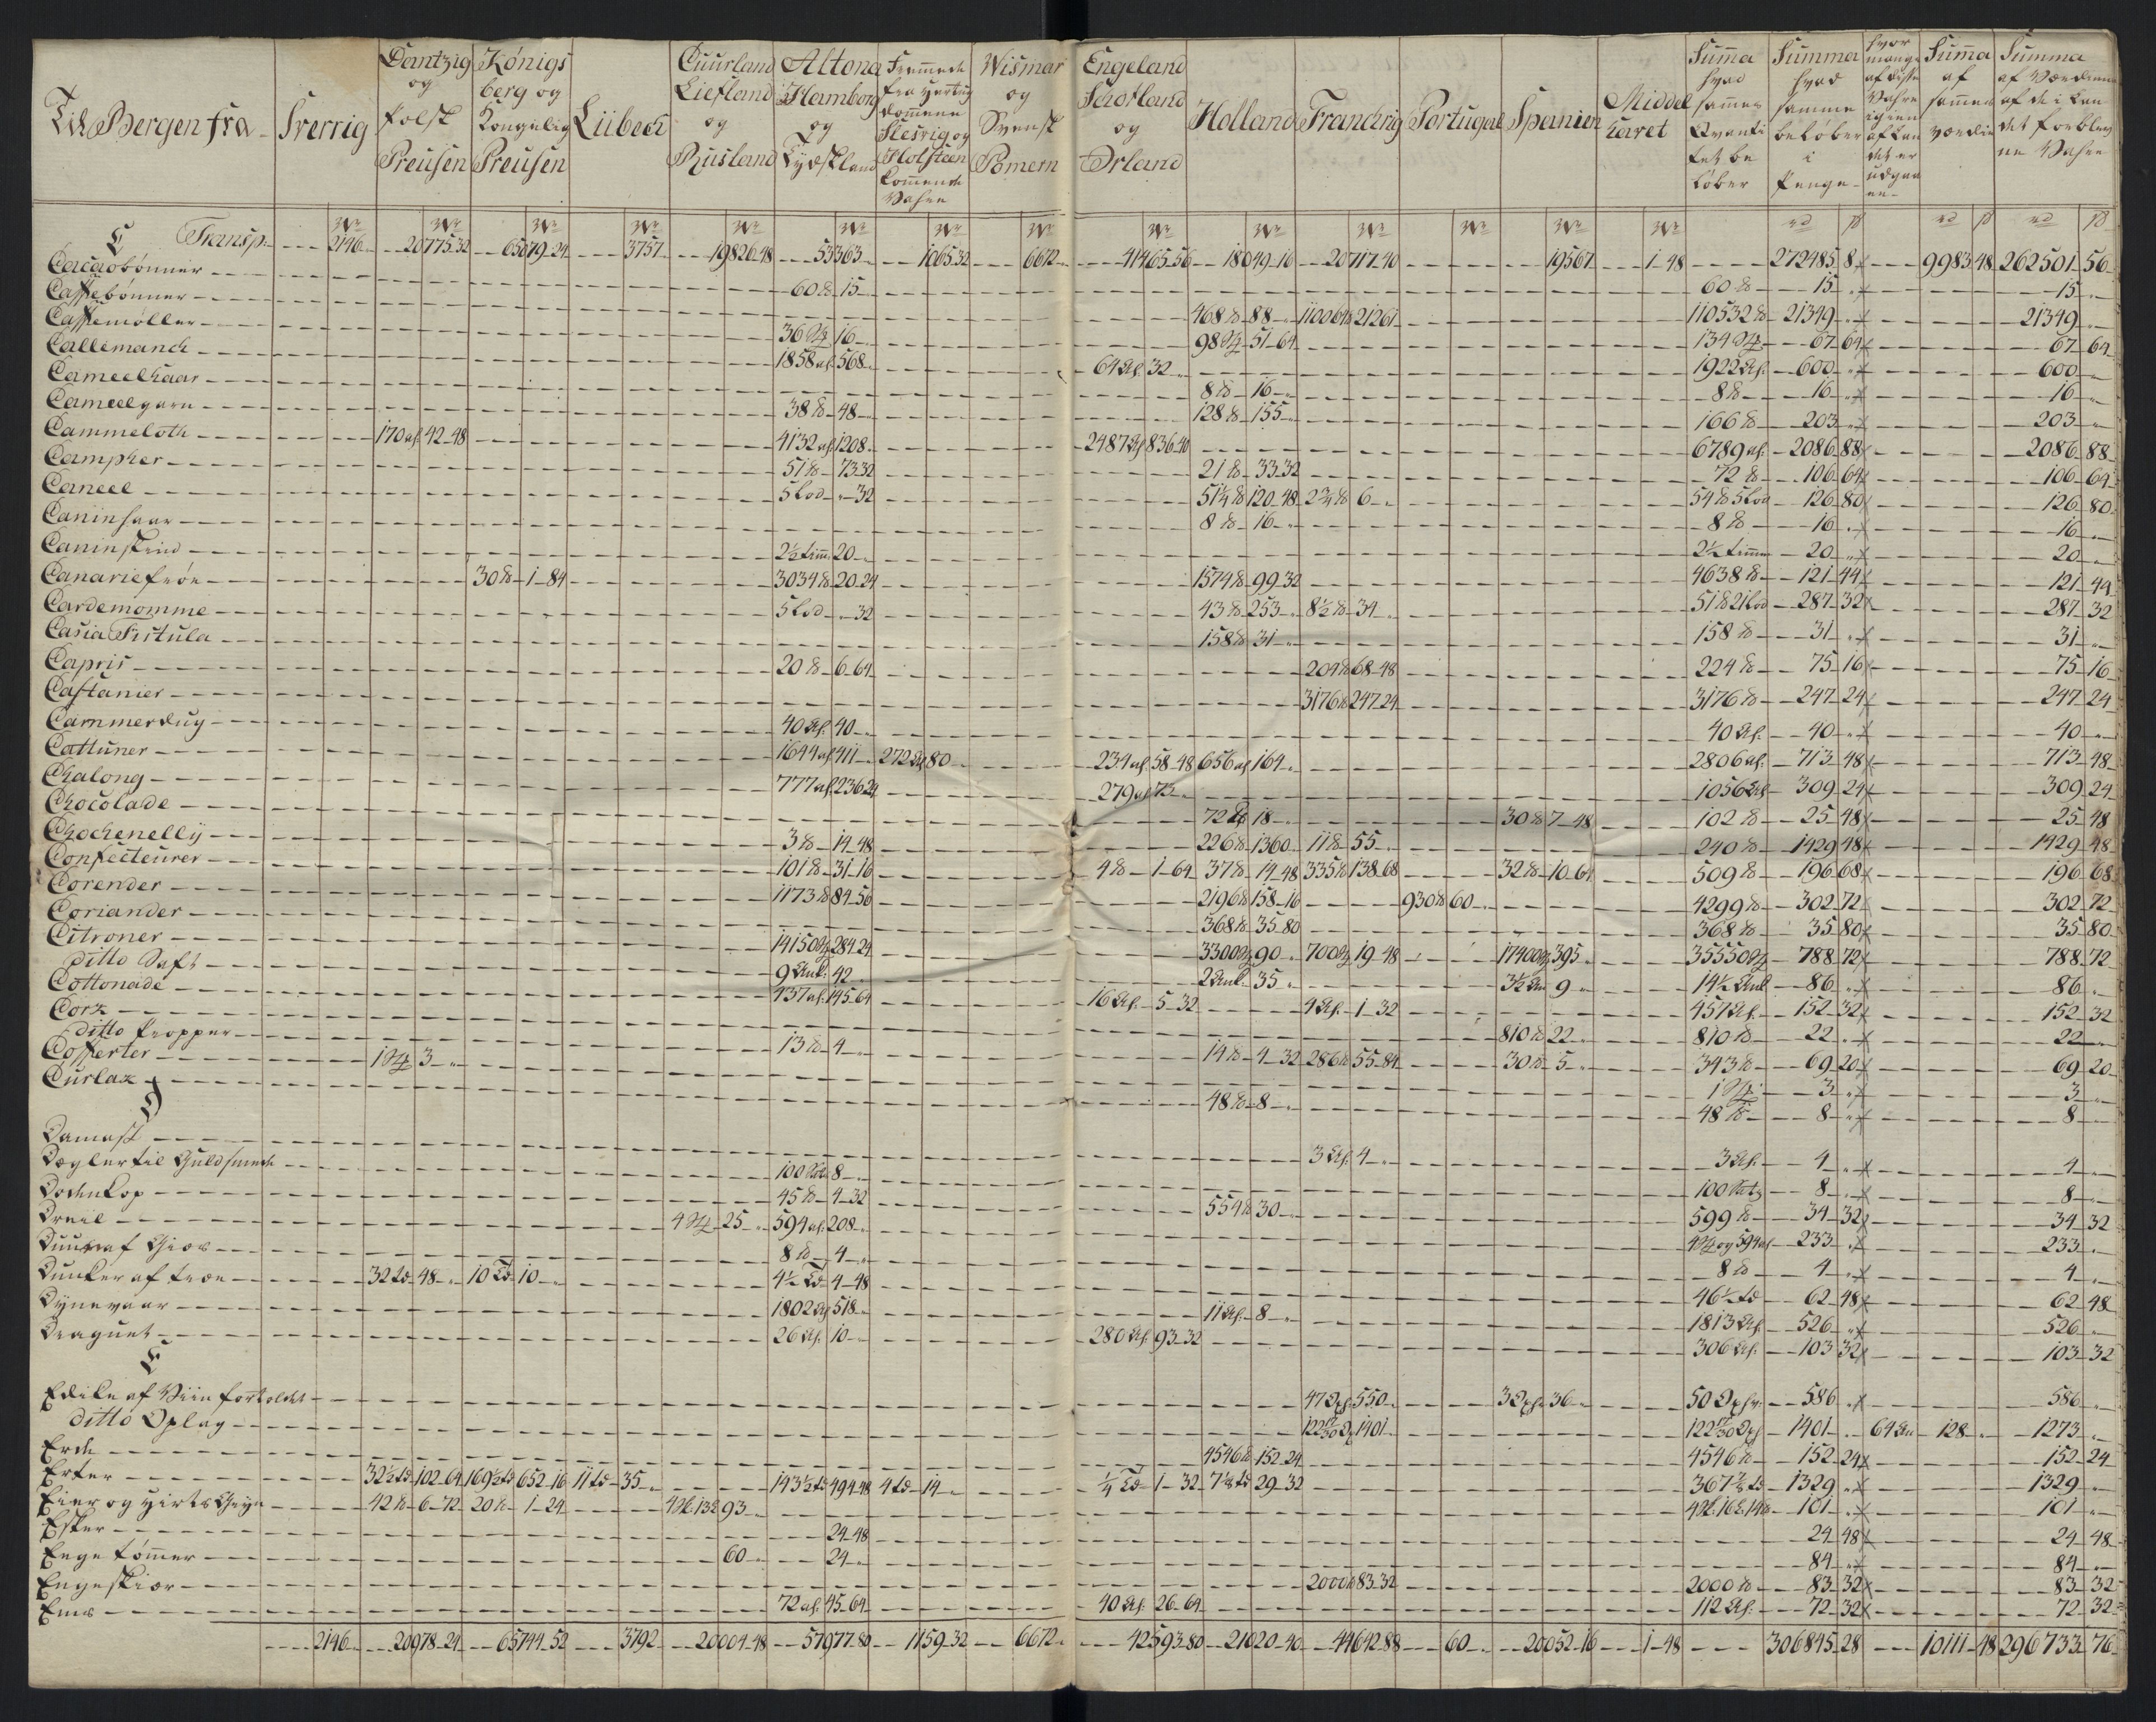 Til Bergen fra
Sverrig
Dantzig og Polsk Preusen
Königsberg og Kongelig Preusen
Lübech
Cuurland Liefland og Rusland
Altona Hamborg og Tydskland
Fremmede fra Hertugdommene Slesvig og Holsteen kommende Vahre
Wismar og Svensk Pomern
Engeland Scotland og Irland
Holland
Franckrig
Portugal
Spanien
Middel havet
Summa hvad sammes Qvantitet beløber
Summa hvad samme beløber i Penge
hvor mange af disse Vahre igien af Landet er udgaaen
Summa af sammes værdie
Summa af Værdienne af de i Landet forblevne Vahre
C Transp. 2146 20775 32 65079 24 3757 19826 48 53363 1065 32 6672 41465 56 18049 16 20717 40 19567 1 48 272485 8 9983 48 262501 56
Cacaobønner 60 ℔ 15 60 ℔ 15 15
Caffebønner 468 ℔ 88 110064 ℔ 21261 110532 ℔ 21349 21349
Caffemøller 36 St 16 98 St 51 64 134 St 67 64 67 64
Callemanck 1858 al. 568 64 Al. 32 1922 Al. 600 600
Cameelhaar 8 ℔ 16 8 ℔ 16 16
Cameelgarn 38 ℔ 48 128 ℔ 155 166 ℔ 203 203
Cammeloth 170 al. 42 48 4132 al. 1208 2487 Al. 836 40 6789 al. 2086 88 2086 88
Campher 51 ℔ 73 32 21 ℔ 33 32 72 ℔ 106 64 106 64
Caneel 5 Lod 32 51 1/4 ℔ 120 48 2 3/4 ℔ 6 54 ℔ 5 Lod 126 80 126 80
Caninhaar 8 ℔ 16 8 ℔ 16 16
Caninskind 2 1/2 tim. 20 2 1/2 timm 20 20
Canariefrøe 30 ℔ 1 84 3034 ℔ 20 24 1574 ℔ 99 32 4638 ℔ 121 44 121 44
Cardemomme 5 Lod 32 43 ℔ 253 8 1/2 ℔ 34 51 ℔ 21 Lod 287 32 287 32
Casia Fistula 158 ℔ 31 158 ℔ 31 31
Capris 20 ℔ 6 64 204 ℔ 68 48 224 ℔ 75 16 75 16
Castanier 3176 ℔ 247 24 3176 ℔ 247 24 247 24
Cammerdug 40 Al. 40 40 Al. 40 40
Cattuner 1644 al. 411 272 Al. 80 234 al. 58 48 656 al. 164 2806 al. 713 48 713 48
Chalong 777 al. 236 24 279 al. 73 1056 Al. 309 24 309 24
Chocolade 72 ℔ 18 30 ℔ 7 48 102 ℔ 25 48 25 48
Chochenelly 3 ℔ 14 48 226 ℔ 1360 11 ℔ 55 240 ℔ 1429 48 1429 48
Confecteurer 101 ℔ 31 16 4 ℔ 1 64 37 ℔ 14 48 335 ℔ 138 68 32 ℔ 10 64 509 ℔ 196 68 196 68
Corender 1173 ℔ 84 56 2196 ℔ 158 16 930 ℔ 60 4299 ℔ 302 72 302 72
Coriander 368 ℔ 35 80 368 ℔ 35 80 35 80
Citroner 14150 St 284 24 3300 St 90 700 St 19 48 17400 St 395 35550 St 788 72 788 72
ditto Saft 9 Ank. 42 2 Ank. 35 3 1/2 An 9 14 1/2 Ank 86 86
Cottonade 437 al. 145 64 16 Al. 5 32 4 Al. 1 32 457 Al. 152 32 152 32
Cork 810 ℔ 22 810 ℔ 22 22
ditto Propper 13 ℔ 4 14 ℔ 4 32 286 ℔ 55 84 30 ℔ 5 343 ℔ 69 20 69 20
Cofferter 1 St 3 1 St 3 3
Curlak 48 ℔ 8 48 ℔ 8 8
D
Damast 3 Al. 4 3 Al. 4 4
Degler til Guldsmede 100 8 100 8 8
Dodenkop 45 ℔ 4 32 554 ℔ 30 599 ℔ 34 32 34 32
Dreil 4 St 25 594 al. 208 4 St og 594 al 233 233
8 ℔ 4 8 ℔ 4 4
Dunker af træe 32 td 48 10 Td 10 4 1/2 Td 4 48 46 1/2 td 62 48 62 48
Dynevaar 1802 Al. 518 11 Al. 8 1813 Al. 526 526
Draguet 26 Al. 10 280 Al. 93 32 306 Al. 103 32 103 32
E
Edike af Viin fortoldet 47 Oxh. 550 3 Oxh. 36 50 Oxhr. 586 586
ditto Oplag 122 17/30 Ox. 1401 122 17/30 Oxh 1401 64 An 128 1273
Erde 4546 ℔ 152 24 4546 ℔ 152 24 152 24
Erter 32 1/2 td 102 64 169 1/2 td 652 16 11 td 35 143 1/2 td 494 48 4 td 14 1/4 Td 1 32 7 1/4 td 29 32 367 7/8 td 1329 1329
42 ℔ 6 72 20 ℔ 1 24 93 101 101
Esker 24 48 24 48 24 48
Enge tømmer 60 24 84 84
Engeskiær 2000 ℔ 83 32 2000 ℔ 83 32 83 32
72 al. 45 64 40 Al. 26 64 112 Al. 72 32 72 32
2146 20978 24 65744 52 3792 20004 48 57977 80 1159 32 6672 42593 80 21020 40 44642 88 60 20052 16 1 48 306845 28 10111 48 296733 76